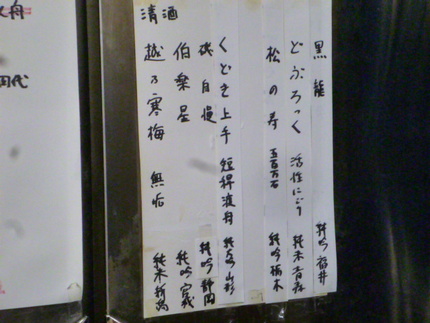 黒龍 純吟 福井
どぶろっく 活性にごり 純米 青森
松の寿 五百万石 純吟 栃木
くどき上手 短稈渡舟 純大吟 山形
磯自慢 純吟 静岡
伯楽星 純吟 宮城
越乃寒梅 無垢 純米 新潟
清酒
舟
田代